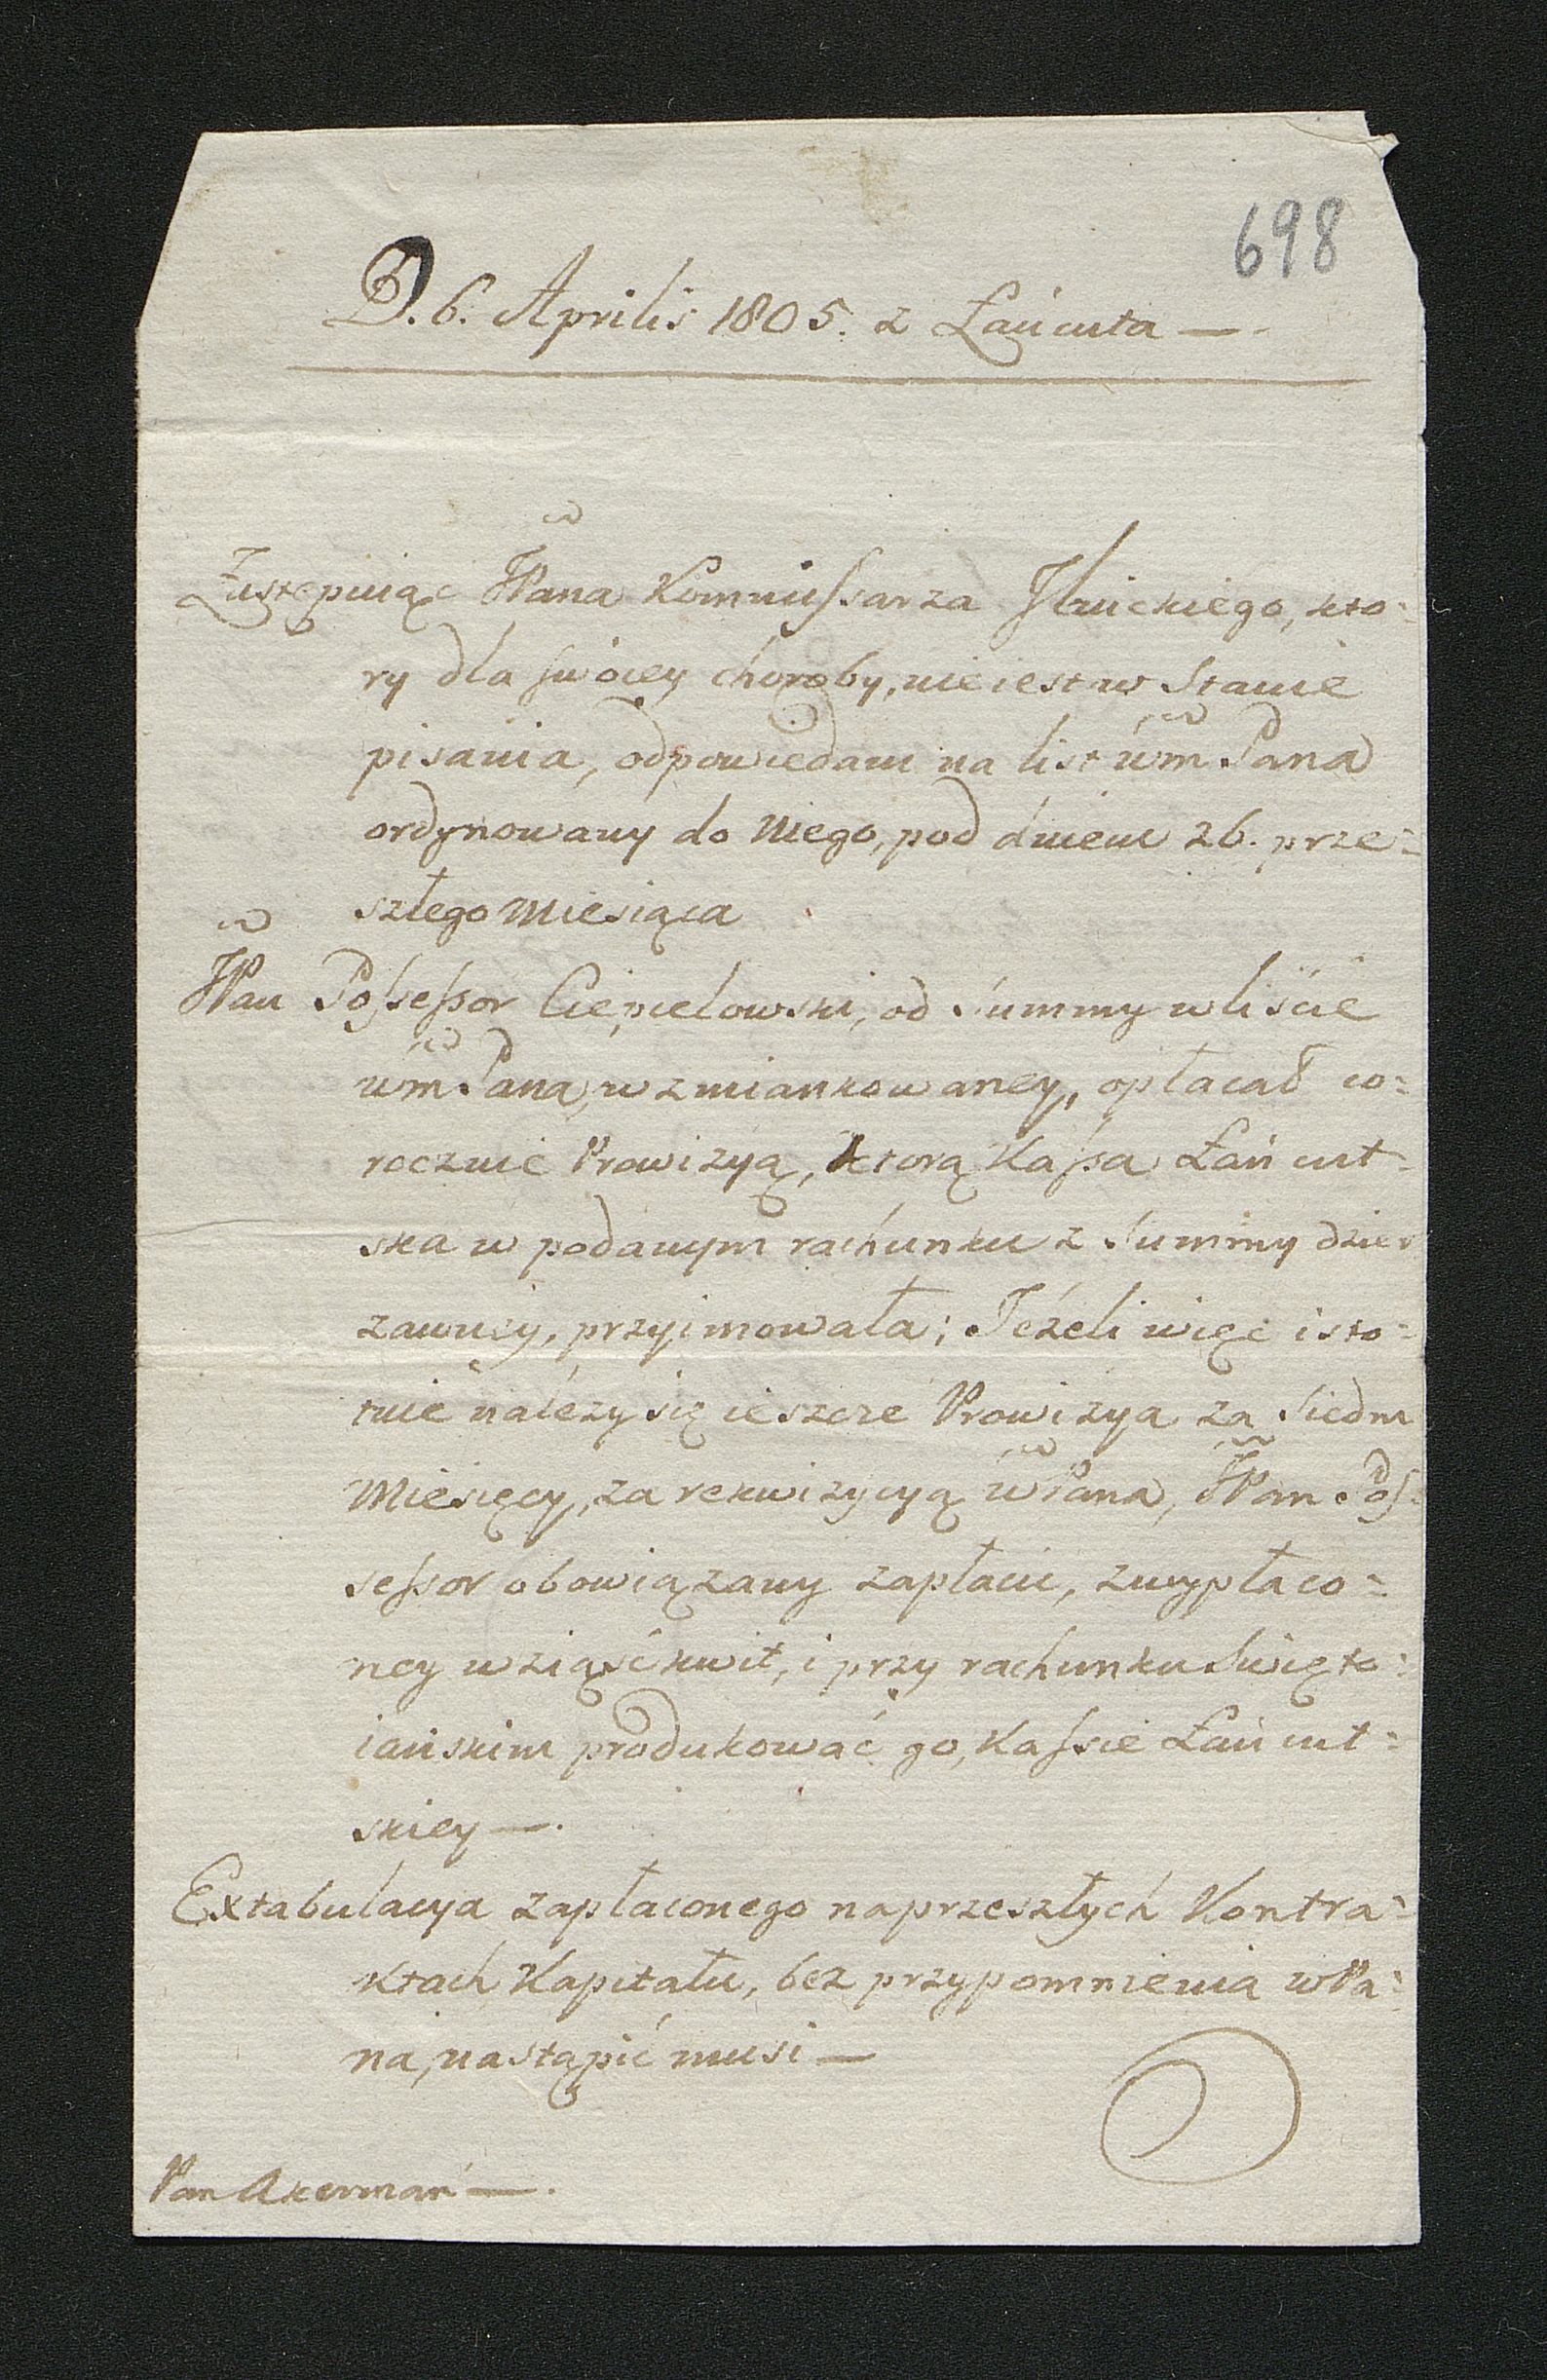 698
D. 6. Aprilis 1805. z Łańcuta —.
Zustępuiąc JPana Kommissarza Ilnickiego, kto=
ry dla swoiey choroby, nie iest w Stanie
pisania, odpowiedam na list wm Pana
ordynowany do Niego, pod dniem 26. prze=
szłego Miesiąca
JPan Possessor Ciepielowski, od Summy w liście
wm Pana, wzmiankowaney, opłacał co=
rocznie Prowizyą, ktorą Kassa Łańcut=
ska w podanym rachunku z Summy dzier
zawney, przyimowała; Jeżeli więc isto=
tnie należy się ieszcze Prowizya za Siedm
Miesięcy, za rekwizycyą WPana, JPan Pos=
sessor obowiązany zapłacić, z wypłaco=
ney wziąść kwit, i przy rachunku Swięto=
iańskim produkować go, Kassie Łańcut=
skiey —.
Extabulacya zapłaconego na przeszłych Kontra=
ktach Kapitału, bez przypomnienia WPa=
na, nastąpić musi —
Pan Akerman —.